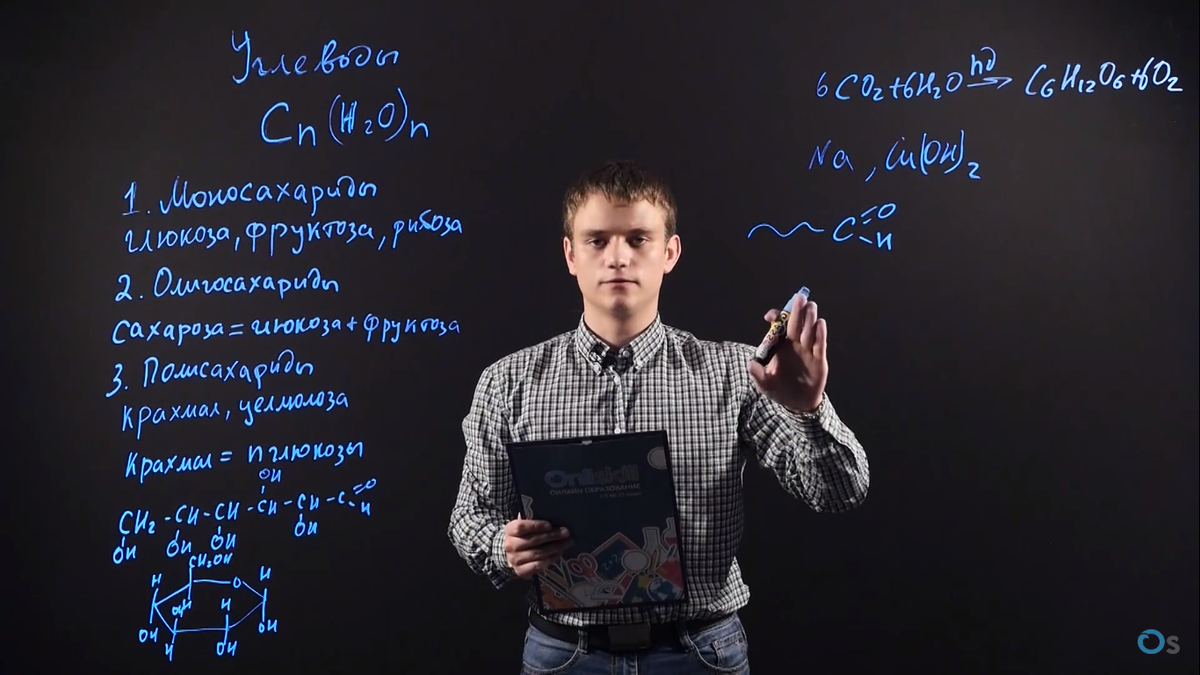 Углеводы
Cn(H2O)n
1. Моносахариды
глюкоза, фруктоза, рибоза
2. Олигосахариды
сахароза = глюкоза + фруктоза
3. Полисахариды
крахмал, целлюлоза
крахмал = n глюкозы
OH
CH2 - CH - CH - CH - CH - C =O
H
OH OH OH OH
CH2OH
H O H
OH H H
OH H OH OH
6CO2+6H2O hν → C6H12O6+6O2
Na, Cu(OH)2
C =O
H
Oniskill
ОНЛАЙН ОБРАЗОВАНИЕ
Os